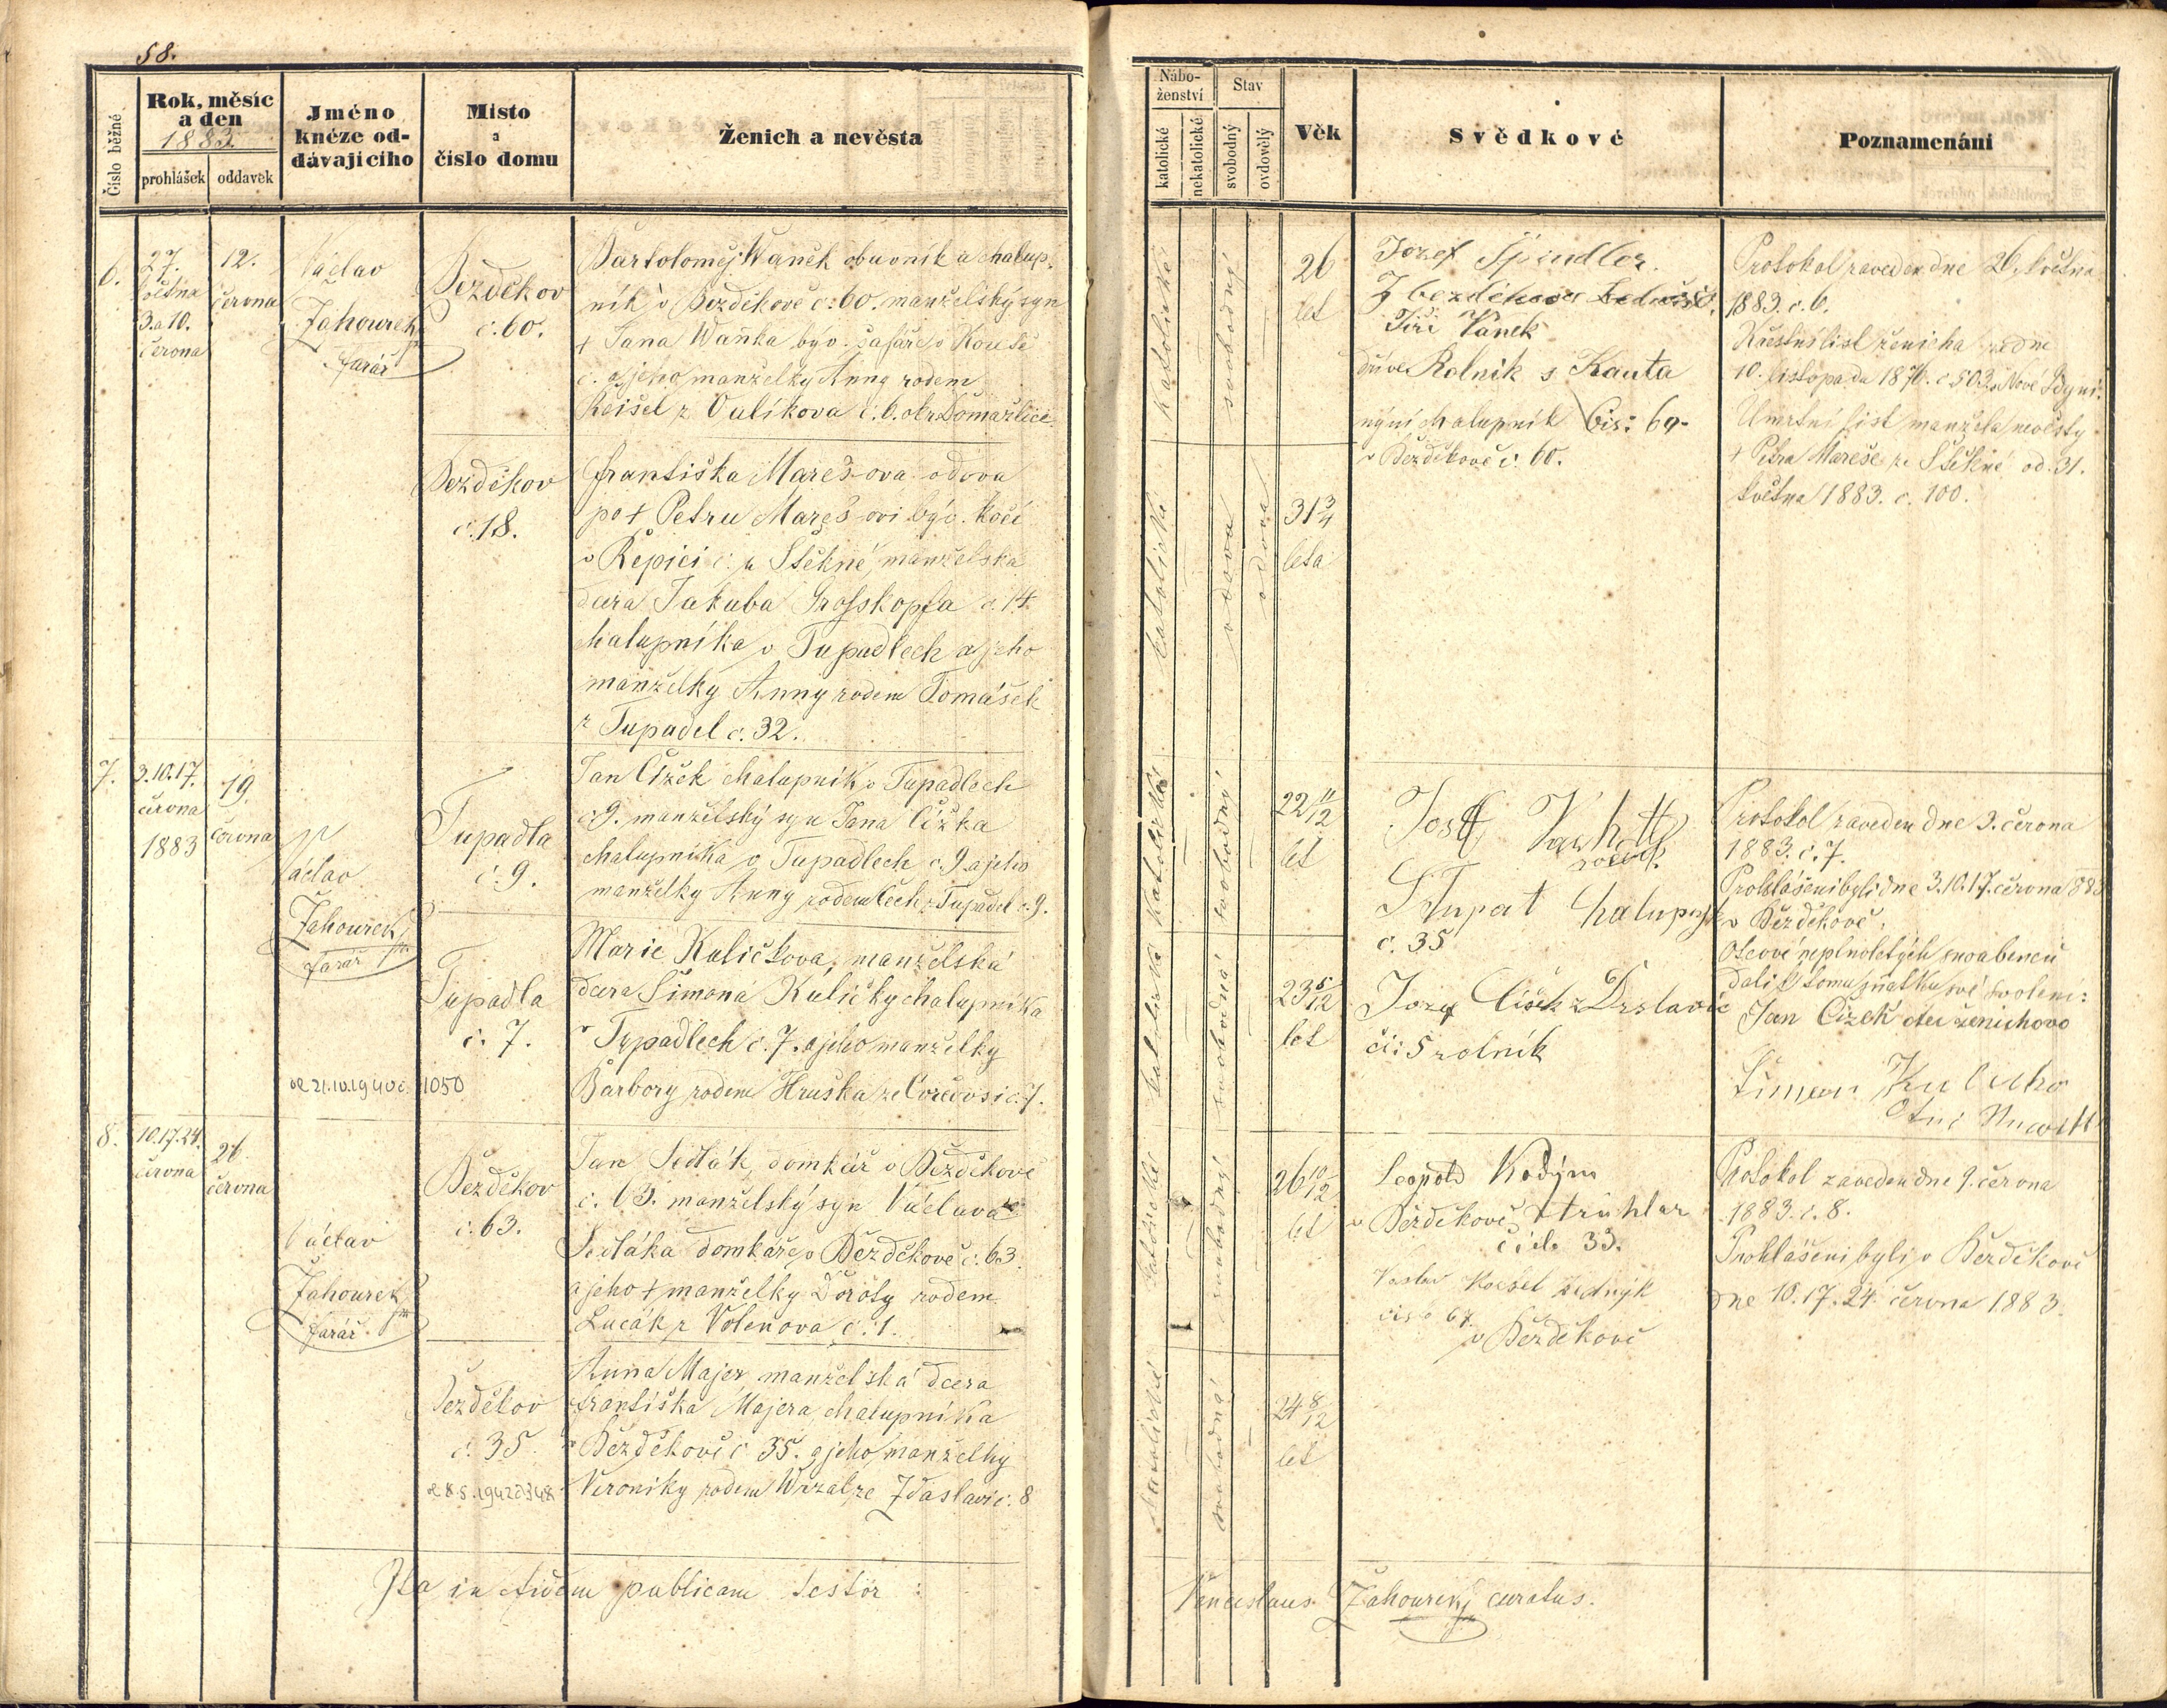 58.
Číslo běžné
Rok, měsíc
a den
1883.
prohlášek
oddavek
Jméno
knéze od-
dávajicího
Misto
a
číslo domu
Ženich a nevěsta
6.
27.
května
3. a 10.
června
12.
června
Václav
Zahourek
farář
Bezděkov
č. 60.
Bartoloměj Waněk obuvník a chalup-
ník v Bezděkově č. 60. manželský syn
+ Jana Waňka býv. šafáře v Koutě
č. a jeho manželky Anny rodem
Reisel z Oulíkova č. 6. okr. Domažlice.
Bezděkov
č. 18.
Františka Marešova vdova
po + Petru Mareš-ovi býv. kočí
v Řepici č. u Štěkně, manželská
dcera Jakuba Grosskopfa č. 14.
chalupníka v Tupadlech a jeho
manželky Anny rodem Tomášek
z Tupadel č. 32.
7.
3. 10. 17.
června
1883
19.
června
Václav
Zahourek
farář
Tupadla
č. 9.
Jan Čížek chalupník v Tupadlech
č 9. manželský syn Jana Čížka
chalupníka v Tupadlech č. 9. a jeho
manželky Anny rodem Čech z Tupadel č. 9.
Tupadla
č. 7.
Marie Kuličkova, manželská
dcera Šimona Kuličky chalupníka
v Tupadlech č. 7. a jeho manželky
Barbory rodem Hruška ze č. 7.
21.10.1940 č. 1050
8.
10. 17. 24.
června
26.
června
Václav
Zahourek
farář
Bezděkov
č. 63.
Jan Sedlák, domkář v Bezděkově
č. 63. manželský syn Václava
Sedláka domkáře v Bezděkově č. 63.
a jeho + manželky Doroty rodem
Lucák z Volenova č. 1.
Bezděkov
č. 35.
8.5.1942 č 348
Anna Majer manželská dcera
Františka Majera, chalupníka
v Bezděkově č 35. a jeho manželky
Veroniky rodem ze Zdaslavi č. 8
Ita in fidem publicam testor :
Nábo-
ženství
katolické
nekatolické
Stav
svobodný
ovdovělý
Věk
Svědkové
Poznamenání
katolické
svobodný
26
let
Jozef Špindler.
Z bezděkova
Jiří Vaněk
dříve Rolnik s Kauta
nyní chalupník Čis: 60-
v Bezděkově č. 60.
Protokol zaveden dne 26. května
1883. č. 6.
Křestní list ženicha ze dne
10. listopadu 1876. č 503. Nové Kdyni.
Úmrtní list manžela nevěsty
+ Petra Mareše ze Štěkně od 31.
května 1883. č. 100.
katolické
vdova
vdova
31 3/4
leta
katolické
svobodný
22 11/12
let
č. 35
Jozef Čížek z Drslavic
čís: 5 rolník
Protokol zaveden dne 3. června
1883. č. 7.
Prohlášeni byli dne 3. 10. 17. června 883
v Bezděkově.
Otcové neplnoletých snoubenců
dali k tomu sňatku své svolení:
Jan Čížek otec ženichovo
katolické
svobodná
23 5/12
let
katolické
svobodný
26 10/12
let
Leopold Kodým
v Bezděkově truhlar
čislo 33.
čislo 67.
v Bezděkově
Protokol zaveden dne 9. června
1883. č. 8.
Prohlášeni byli v Bezděkově
dne 10. 17. 24. června 1883.
katolické
svobodná
24 8/12
let
Venceslaus Zahourek, curatus.